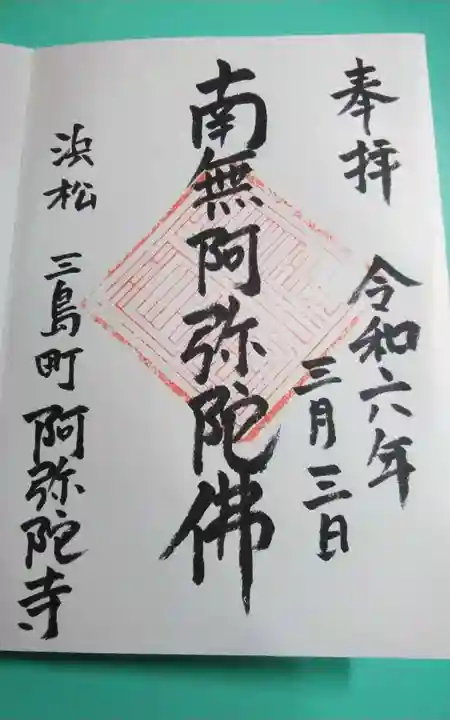 奉拝
令和六年
三月三日
南無阿弥陀佛
浜松 三島町 阿弥陀寺